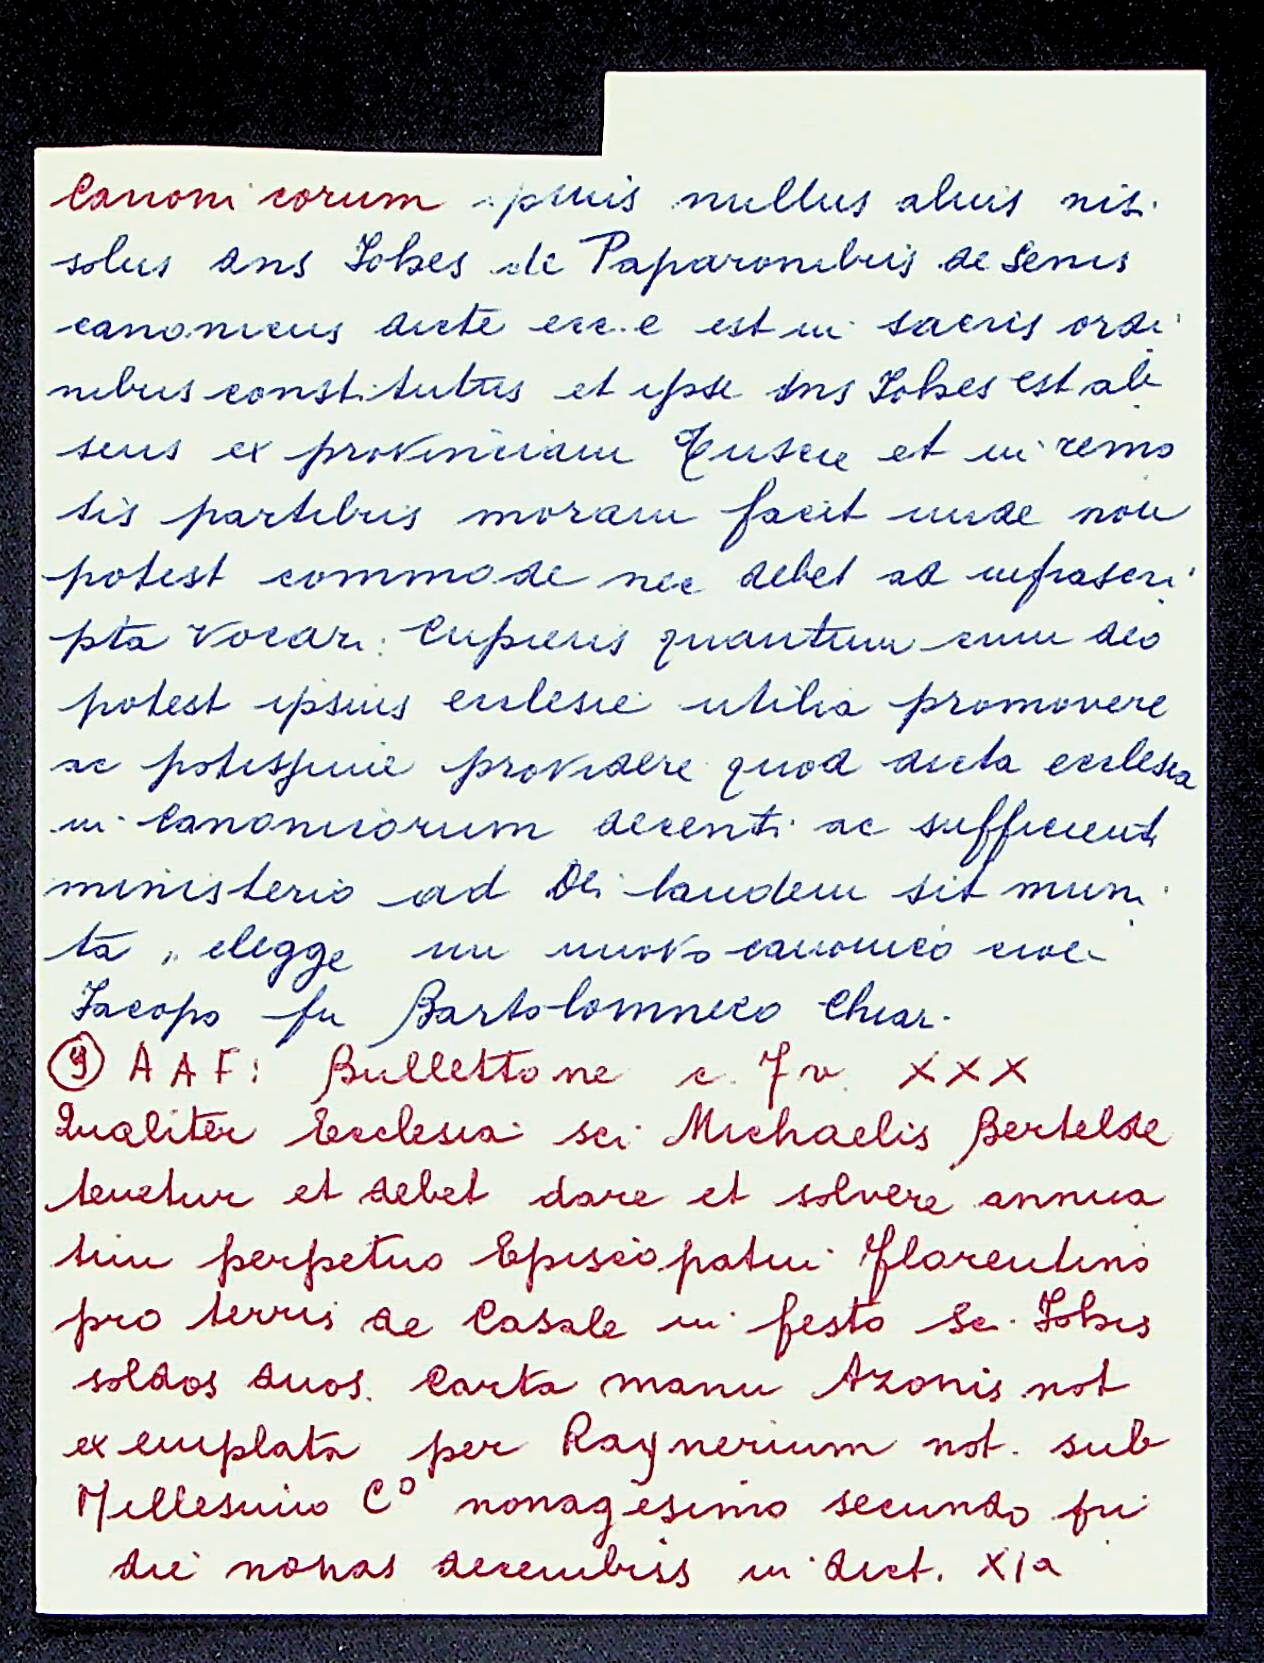 Canonicorum ipsius nullus alius nisi
solus dns Iohes de Paparonibus de Senis
canonicus dicte ecc.e est in sacris ordi
nibus constitutus et ipse dns Iohes est ab
sens ex provinciam Tuscie et in remo
tis partibus moram facit unde non
potest commode nec debet ad infrascri
pta vocari. Cupiens quantum cum deo
potest ipsius ecclesie utilia promovere
ac potissime providere quod dicta ecclesia
in canonicorum decenti ac sufficienti
ministerio ad Dei laudem sit muni
ta, elegge un nuovo canonico cioè
Iacopo fu Bartolommeo Chiar.
9 A A F: Bullettone c. 7 v. XXX
Qualiter Ecclesia sci Michaelis Bertelde
tenetur et debet dare et solvere annua
tim perpetuo Episcopatui Florentino
pro terris de Casale in festo Sci Iohis
soldos duos. Carta manu Azonis not
exemplata per Raynerium not. sub
Millesimo C° nonagesimo secundo pri
die nonas decembris indict. XIa